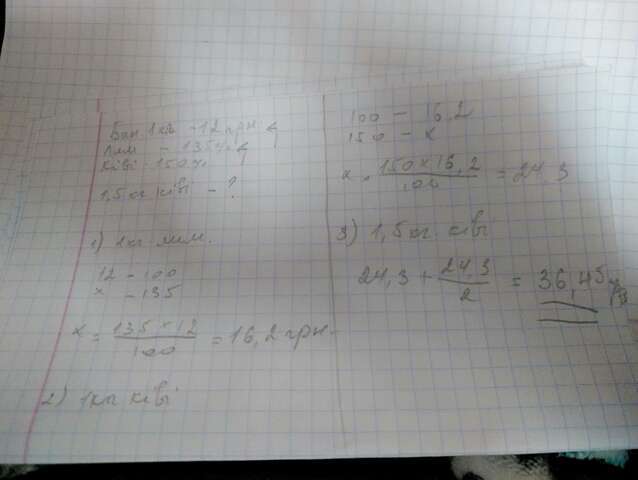 Бан 1кг - 12 грн
Лим - 135%
Ківі 150%
1,5 кг ківі - ?
1) 1кг лим.
12 - 100
x - 135
x = 135 × 12 / 100 = 16,2 грн.
2) 1кг ківі
100 - 16,2
150 - x
x = 150 × 16,2 / 100 = 24,3
3) 1,5 кг ківі
24,3 + 24,3 / 2 = 36,45